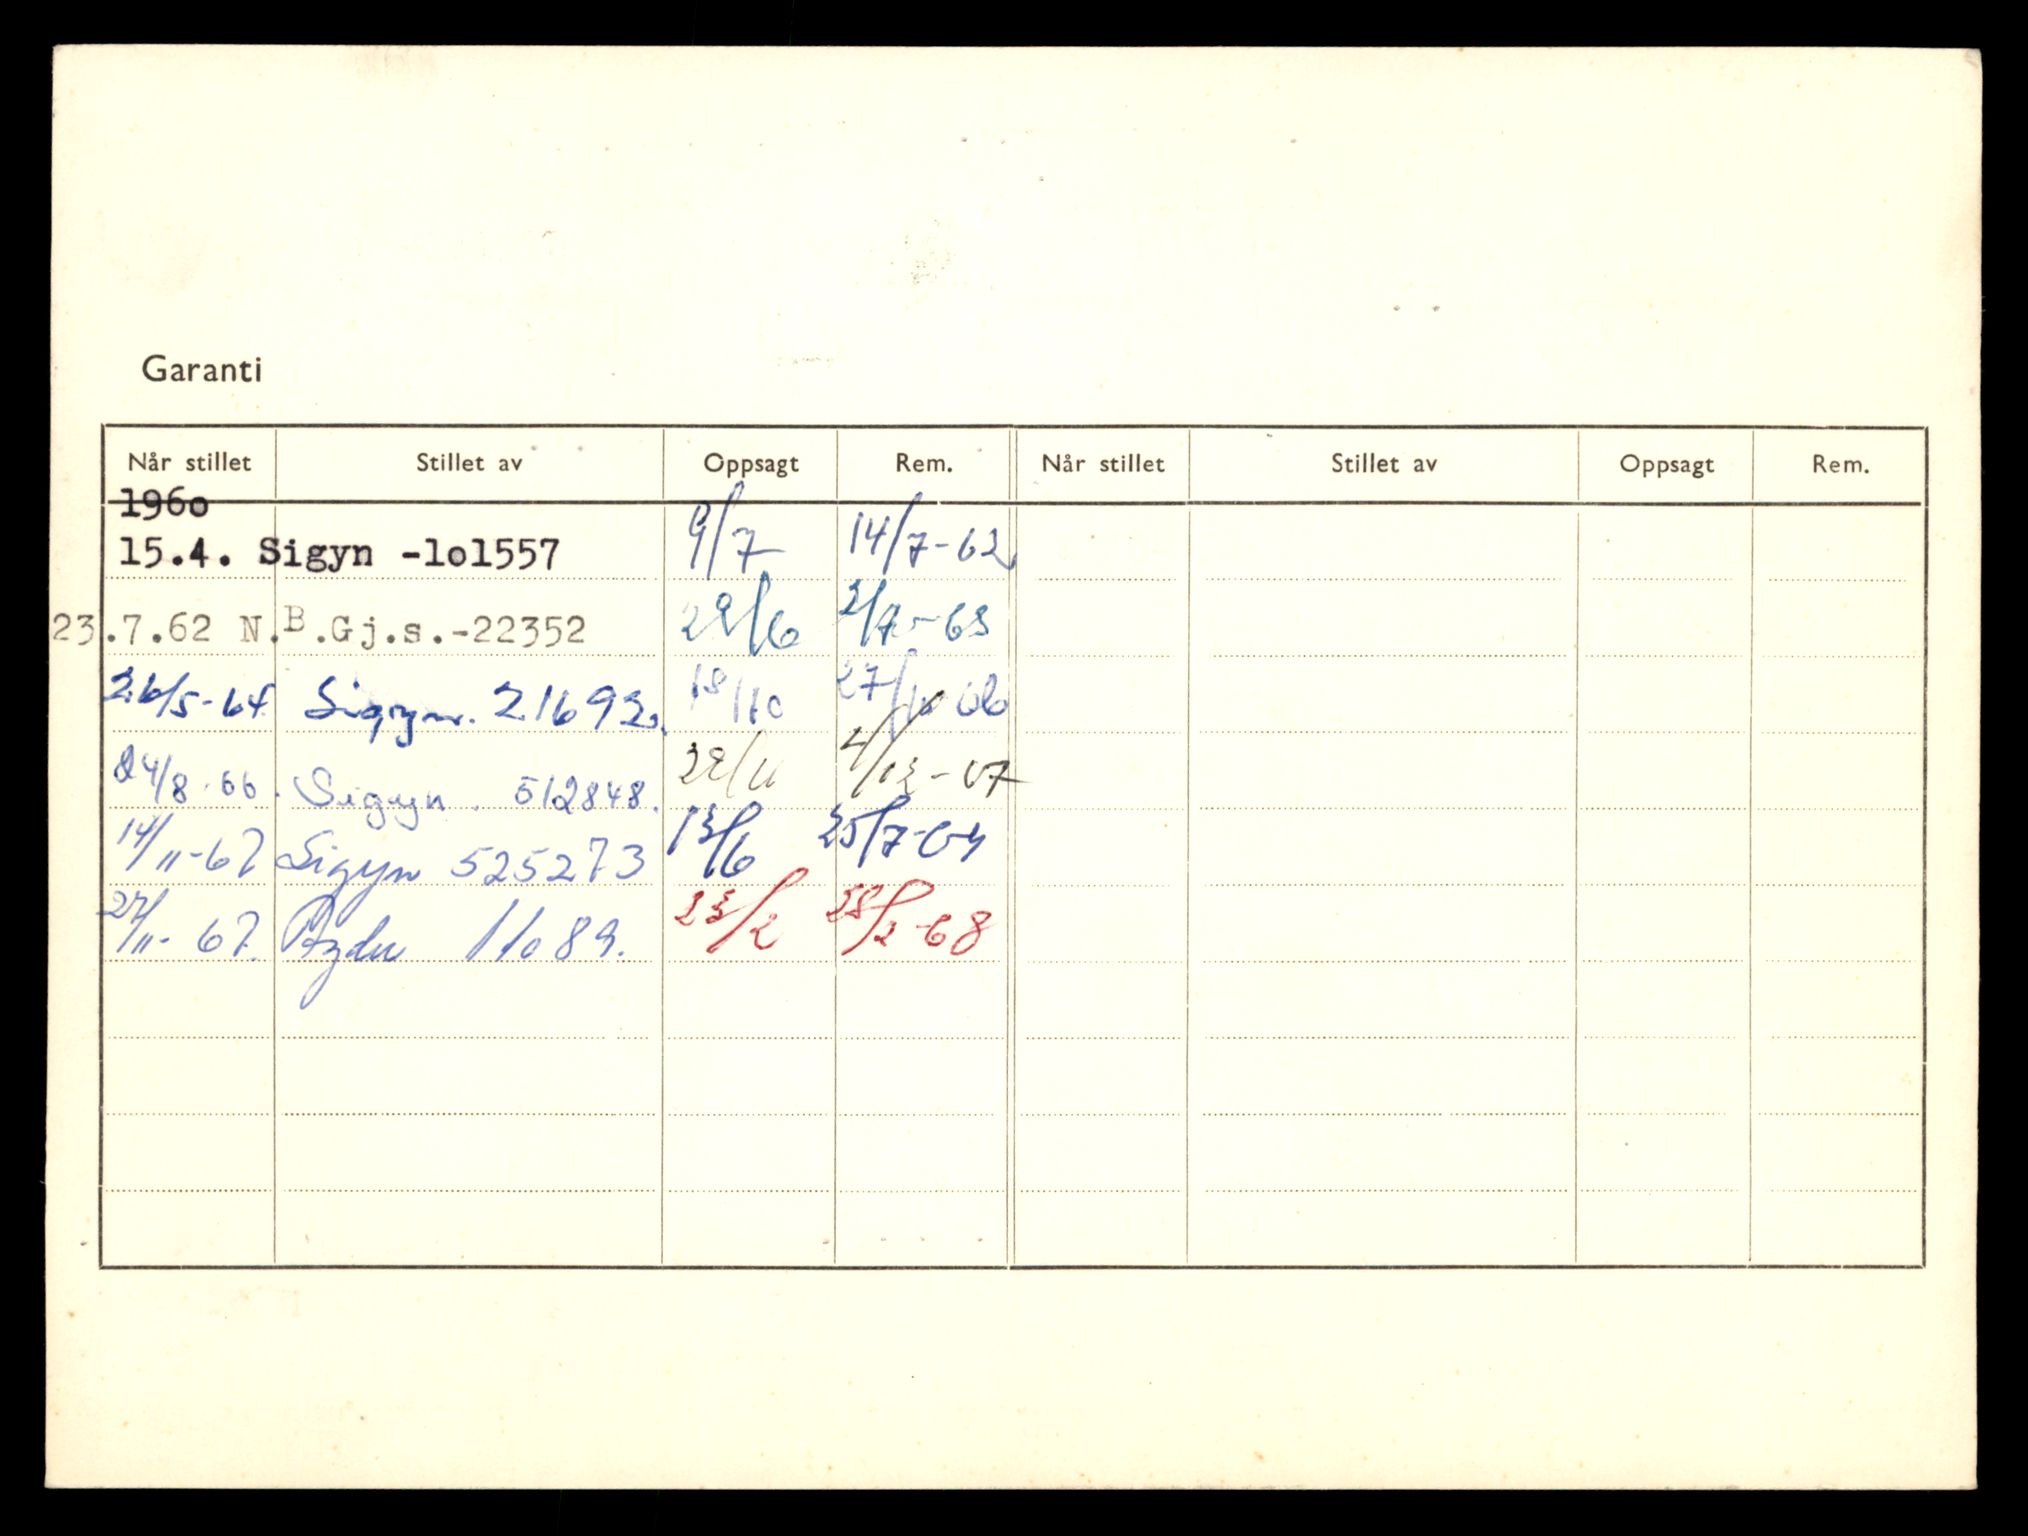 Garanti
Når stillet Stillet av Oppsagt Rem. Når stillet Stillet av Oppsagt Rem.
196o
15.4. Sigyn -1o1557 9/7 14/7-62
23.7.62 N.B.Gj.s.-22352 28/6 2/7-63
26/5-64 Sigyn. 21692. 18/10 27/10 66
24/8.66. Sigyn. 512848. 28/11 4/12-67
14/11-67 Sigyn 525273 13/6 25/7-69
27/11-67. 11089. 23/2 28/2-68